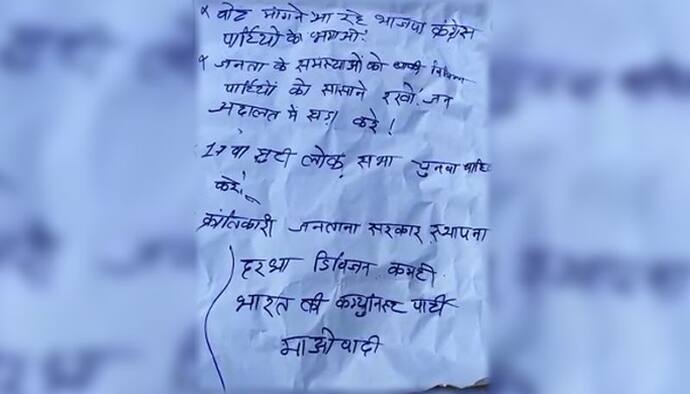 × वोट मांगने आ रहे भाजपा कांग्रेस
पार्टियों के भगाओ!
× जनता के समस्याओं को
पार्टियों को सामने रखो! जन
अदालत में खड़ा करे!
17 वा झूटी लोक सभा चुनवा
करे!
क्रांतिकारी जनताना सरकार स्थापना
दरभा डिविजन कमेटी
भारत की कम्युनिस्ट पार्टी
माओवादी